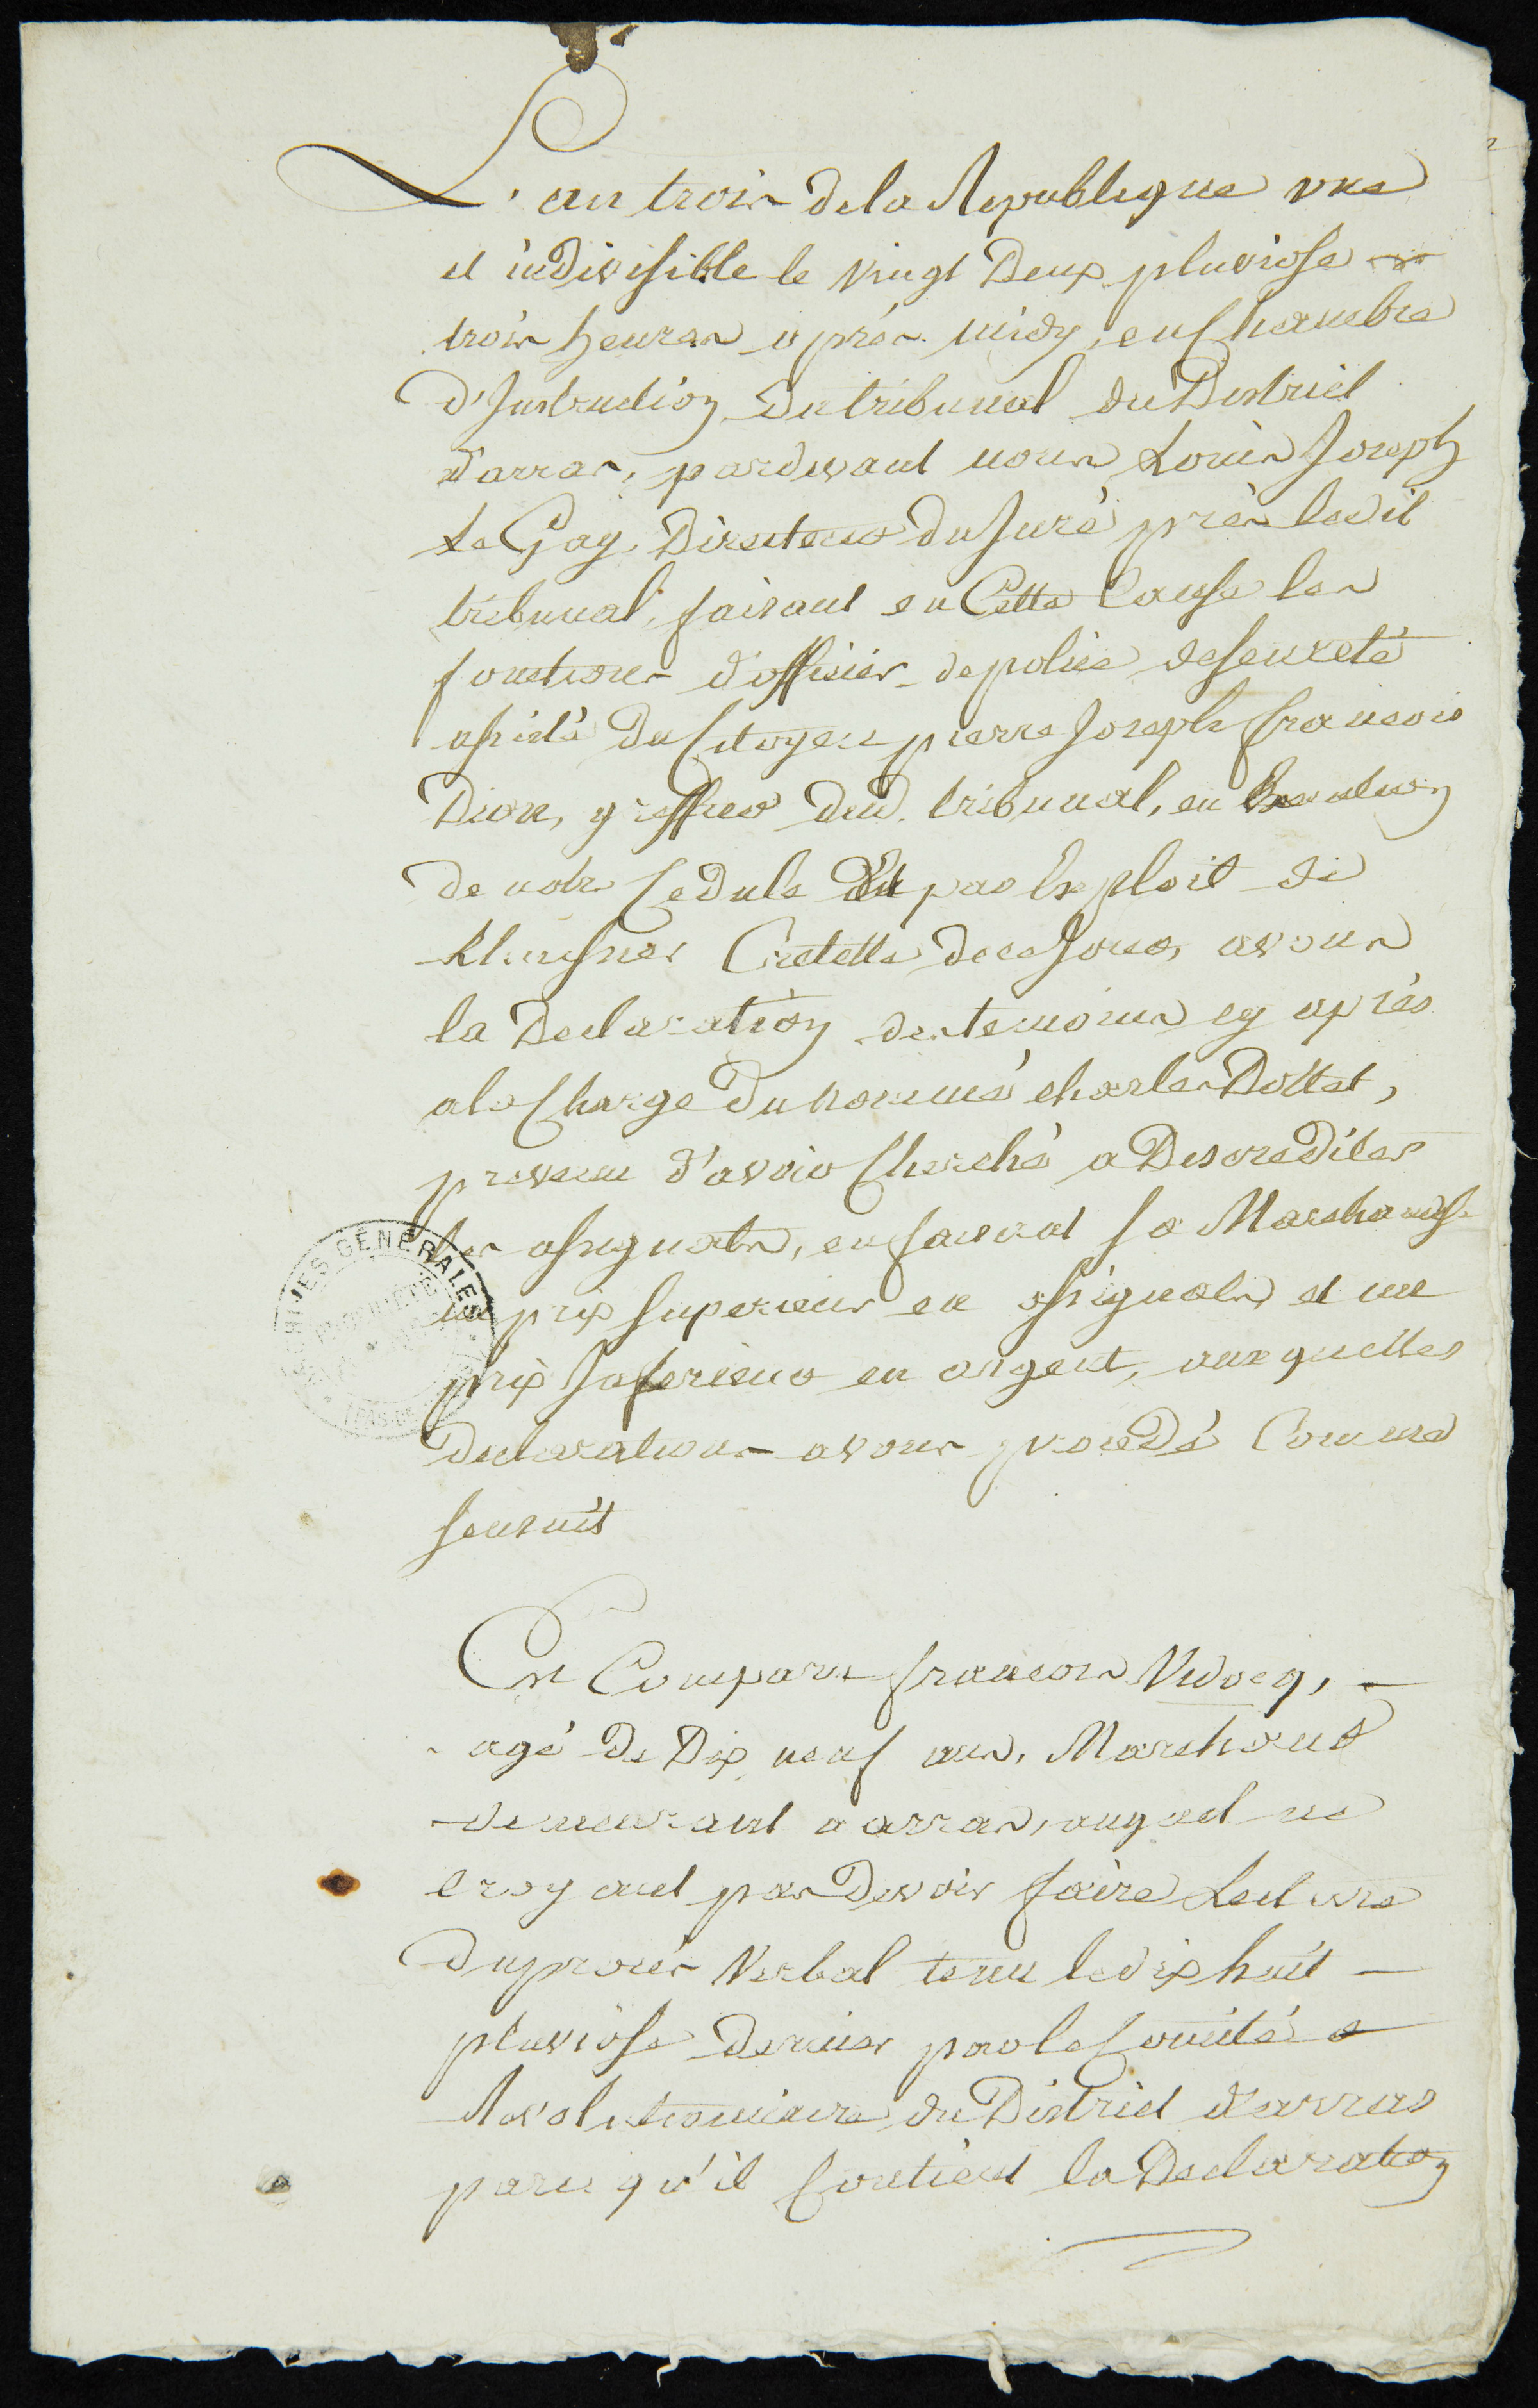 L'an trois de la Republique une
et indivisible le vingt Deux pluviose
trois heures après midy, en chambre
d'Instruction du tribunal du District
d'arras, pardevant nous Louis Joseph
Le Gay, Directeur du Juré près ledit
tribunal, faisant en Cette Cause les
fonctions d'officier de police de seureté
assisté du Citoyen pierre Joseph francois
Dion, greffier dud. tribunal, en Execution
de notre Cedule par Exploit de
l'huissier de ce Jour, avons
la Declaration des temoins cy après
a la Charge du nommé charles Dottet,
prevenu d'avoir Cherché a Descrediter
les assignats, en faisant sa Marchandise
un prix superieur en assignats et un
prix Inferieur en argent, auxquelles
declarations avons procédé Comme
sensuit
Est Comparu francois Vidocq,
agé de Dix neuf ans, Marchand
demeurant a arras, auquel ne
croyant pas Devoir faire Lecture
du procès Verbal tenu le dix huit
pluviose dernier par le Comité
Revolutionnaire du District d'arras
parce qu'il Contient la Declaration
ARCHIVES GÉNÉRALES
PROPRIÉTÉ
PAS-DE